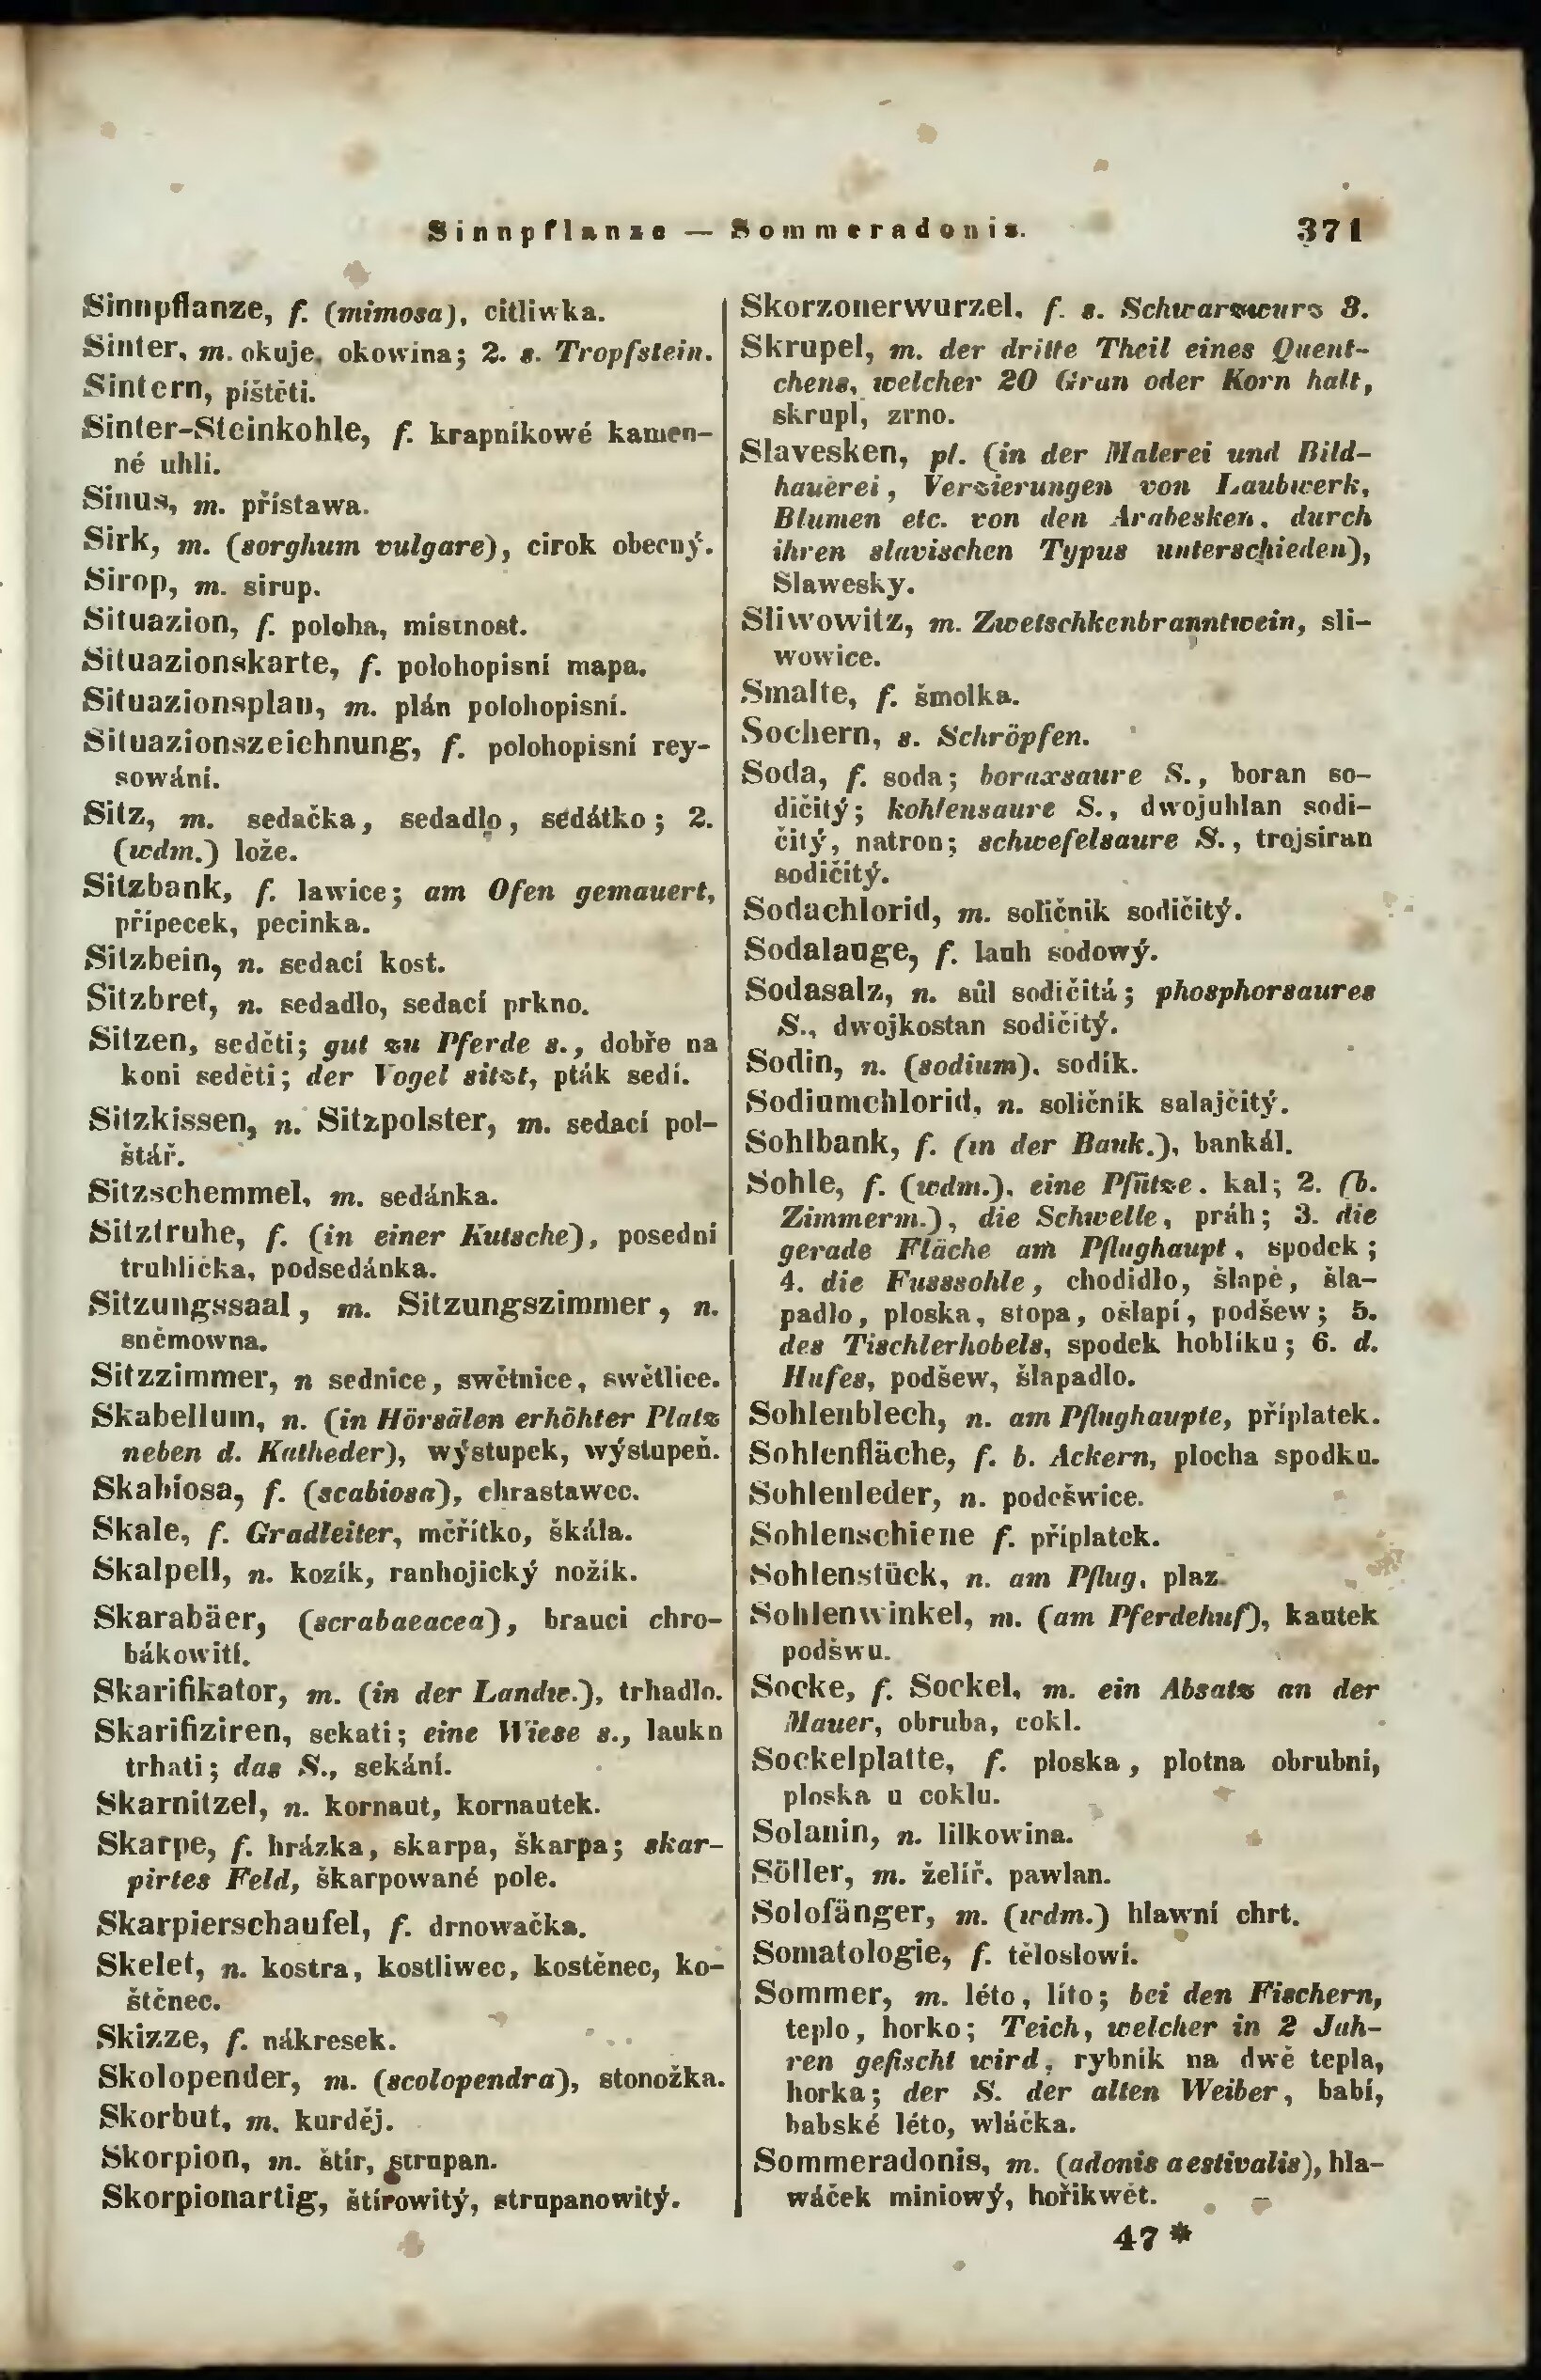 Sinnpflanze — Sommeradonis. 371
Sinnpflanze, f. (mimosa), citliwka.
Sinter, m. okuje, okowina; 2. s. Tropfstein.
Sintern, píštěti.
Sinter-Steinkohle, f. krapníkowé kamen-
né uhlí.
Sinus, m. přístawa.
Sirk, m. (sorghum vulgare), cirok obecný.
Sirop, m. sirup.
Situazion, f. poloha, místnost.
Situazionskarte, f. polohopisní mapa.
Situazionsplan, m. plán polohopisní.
Situazionszeichnung, f. polohopisní rey-
sowání.
Sitz, m. sedačka, sedadlo, sedátko; 2.
(wdm.) lože.
Sitzbank, f. lawice; am Ofen gemauert,
přípecek, pecinka.
Sitzbein, n. sedací kost.
Sitzbret, n. sedadlo, sedací prkno.
Sitzen, seděti; gut zu Pferde s., dobře na
koni seděti; der Vogel sitzt, pták sedí.
Sitzkissen, n. Sitzpolster, m. sedací pol-
štář.
Sitzschemmel, m. sedánka.
Sitztruhe, f. (in einer Kutsche), posední
truhlička, podsedánka.
Sitzungssaal, m. Sitzungszimmer, n.
sněmowna.
Sitzzimmer, n sednice, swětnice, swětlice.
Skabellum, n. (in Hörsälen erhöhter Platz
neben d. Katheder), wýstupek, wýstupeň.
Skabiosa, f. (scabiosa), chrastawec.
Skale, f. Gradleiter, měřítko, škála.
Skalpell, n. kozík, ranhojický nožík.
Skarabäer, (scrabaeacea), brauci chro-
bákowití.
Skarifikator, m. (in der Landw.), trhadlo.
Skarifiziren, sekati; eine Wiese s., lauku
trhati; das S., sekání.
Skarnitzel, n. kornaut, kornautek.
Skarpe, f. hrázka, skarpa, škarpa; skar-
pirtes Feld, škarpowané pole.
Skarpierschaufel, f. drnowačka.
Skelet, n. kostra, kostliwec, kostěnec, ko-
štěnec.
Skizze, f. nákresek.
Skolopender, m. (scolopendra), stonožka.
Skorbut, m. kurděj.
Skorpion, m. štír, strupan.
Skorpionartig, štírowitý, strupanowitý.
Skorzonerwurzel, f. s. Schwarzwurz 3.
Skrupel, m. der dritte Theil eines Quent-
chens, welcher 20 Gran oder Korn halt,
skrupl, zrno.
Slavesken, pl. (in der Malerei und Bild-
hauerei, Verzierungen von Laubwerk,
Blumen etc. von den Arabesken, durch
ihren slavischen Typus unterschieden),
Slawesky.
Sliwowitz, m. Zwetschkenbranntwein, sli-
wowice.
Smalte, f. šmolka.
Sochern, s. Schröpfen.
Soda, f. soda; boraxsaure S., boran so-
dičitý; kohlensaure S., dwojuhlan sodi-
čitý, natron; schwefelsaure S., trojsiran
sodičitý.
Sodachlorid, m. soličník sodičitý.
Sodalauge, f. lauh sodowý.
Sodasalz, n. sůl sodičitá; phosphorsaures
S., dwojkostan sodičitý.
Sodin, n. (sodium), sodík.
Sodiumchlorid, n. soličník salajčitý.
Sohlbank, f. (in der Bauk.), bankál.
Sohle, f. (wdm.), eine Pfütze, kal; 2. (b.
Zimmerm.), die Schwelle, práh; 3. die
gerade Fläche am Pflughaupt, spodek;
4. die Fusssohle, chodidlo, šlapě, šla-
padlo, ploska, stopa, ošlapí, podšew; 5.
des Tischlerhobels, spodek hoblíku; 6. d.
Hufes, podšew, šlapadlo.
Sohlenblech, n. am Pflughaupte, příplatek.
Sohlenfläche, f. b. Ackern, plocha spodku.
Sohlenleder, n. podešwice.
Sohlenschiene f. příplatek.
Sohlenstück, n. am Pflug, plaz.
Sohlenwinkel, m. (am Pferdehuf), kautek
podšwu.
Socke, f. Sockel, m. ein Absatz an der
Mauer, obruba, cokl.
Sockelplatte, f. ploska, plotna obrubní,
ploska u coklu.
Solanin, n. lilkowina.
Söller, m. želíř, pawlan.
Solofänger, m. (wdm.) hlawní chrt.
Somatologie, f. těloslowí.
Sommer, m. léto, líto; bei den Fischern,
teplo, horko; Teich, welcher in 2 Jah-
ren gefischt wird, rybník na dwě tepla,
horka; der S. der alten Weiber, babí,
babské léto, wláčka.
Sommeradonis, m. (adonis aestivalis), hla-
wáček miniowý, hořikwět.
47 *